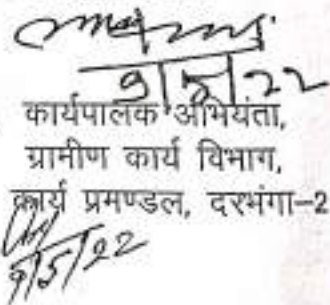 9/5/22
कार्यपालक अभियंता,
ग्रामीण कार्य विभाग,
कार्य प्रमण्डल, दरभंगा-2
9/5/22